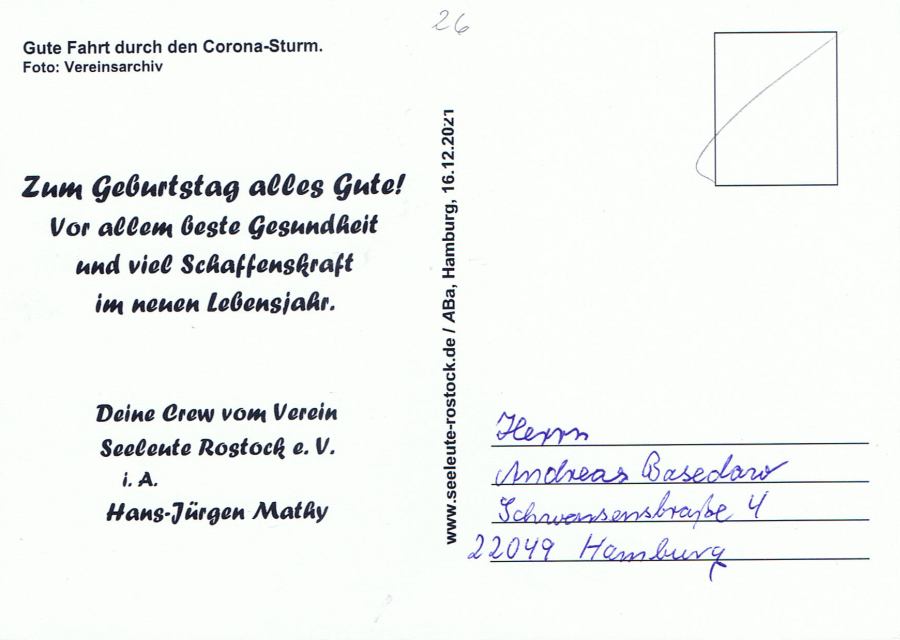 26
Gute Fahrt durch den Corona-Sturm.
Foto: Vereinsarchiv
Zum Geburtstag alles Gute!
Vor allem beste Gesundheit
und viel Schaffenskraft
im neuen Lebensjahr.
Deine Crew vom Verein
Seeleute Rostock e. V.
i. A.
Hans-Jürgen Mathy
www.seeleute-rostock.de / ABa, Hamburg, 16.12.2021
Herrn
Andreas Basedow
Schwansenstraße 4
22049 Hamburg